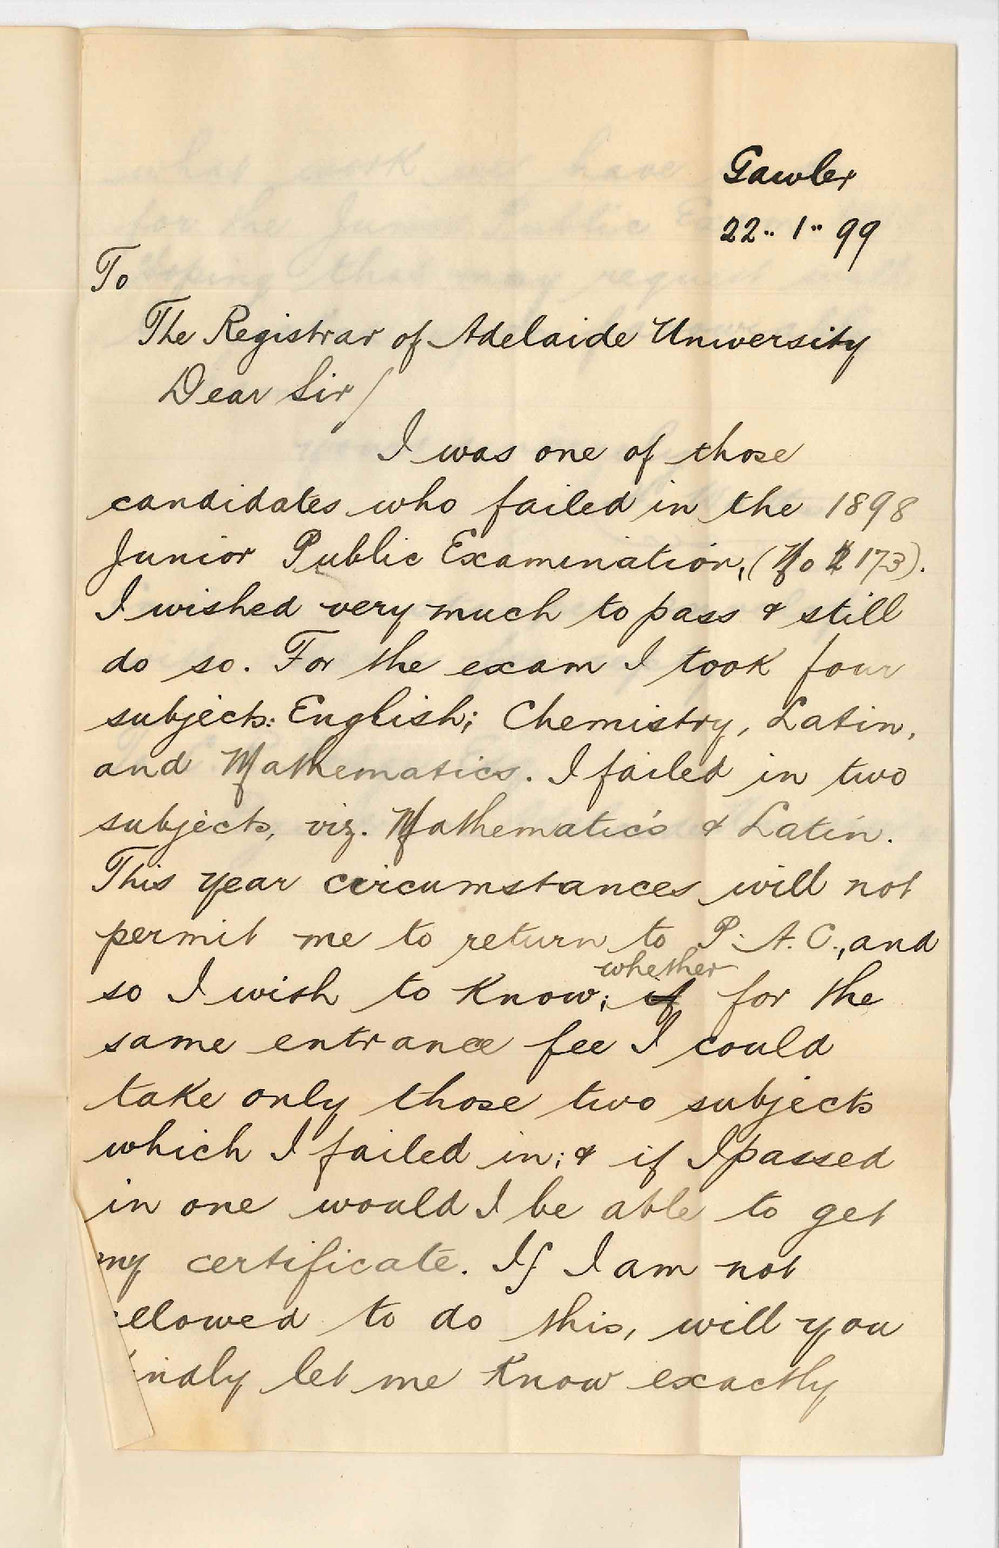 Gawler
22.. 1.. 99
To
The Registrar of Adelaide University
Dear Sir/
I was one of those
candidates who failed in the 1898
Junior Public Examination, (No 173).
I wished very much to pass & still
do so. For the exam I took four
subjects: English; Chemistry, Latin,
and Mathematics. I failed in two
subjects, viz. Mathematics & Latin.
This year circumstances will not
permit me to return to P. A. C., and
whether
so I wish to know; if for the
same entrance fee I could
take only those two subjects
which I failed in; & if I passed
in one would I be able to get
my certificate. If I am not
allowed to do this, will you
kindly let me know exactly